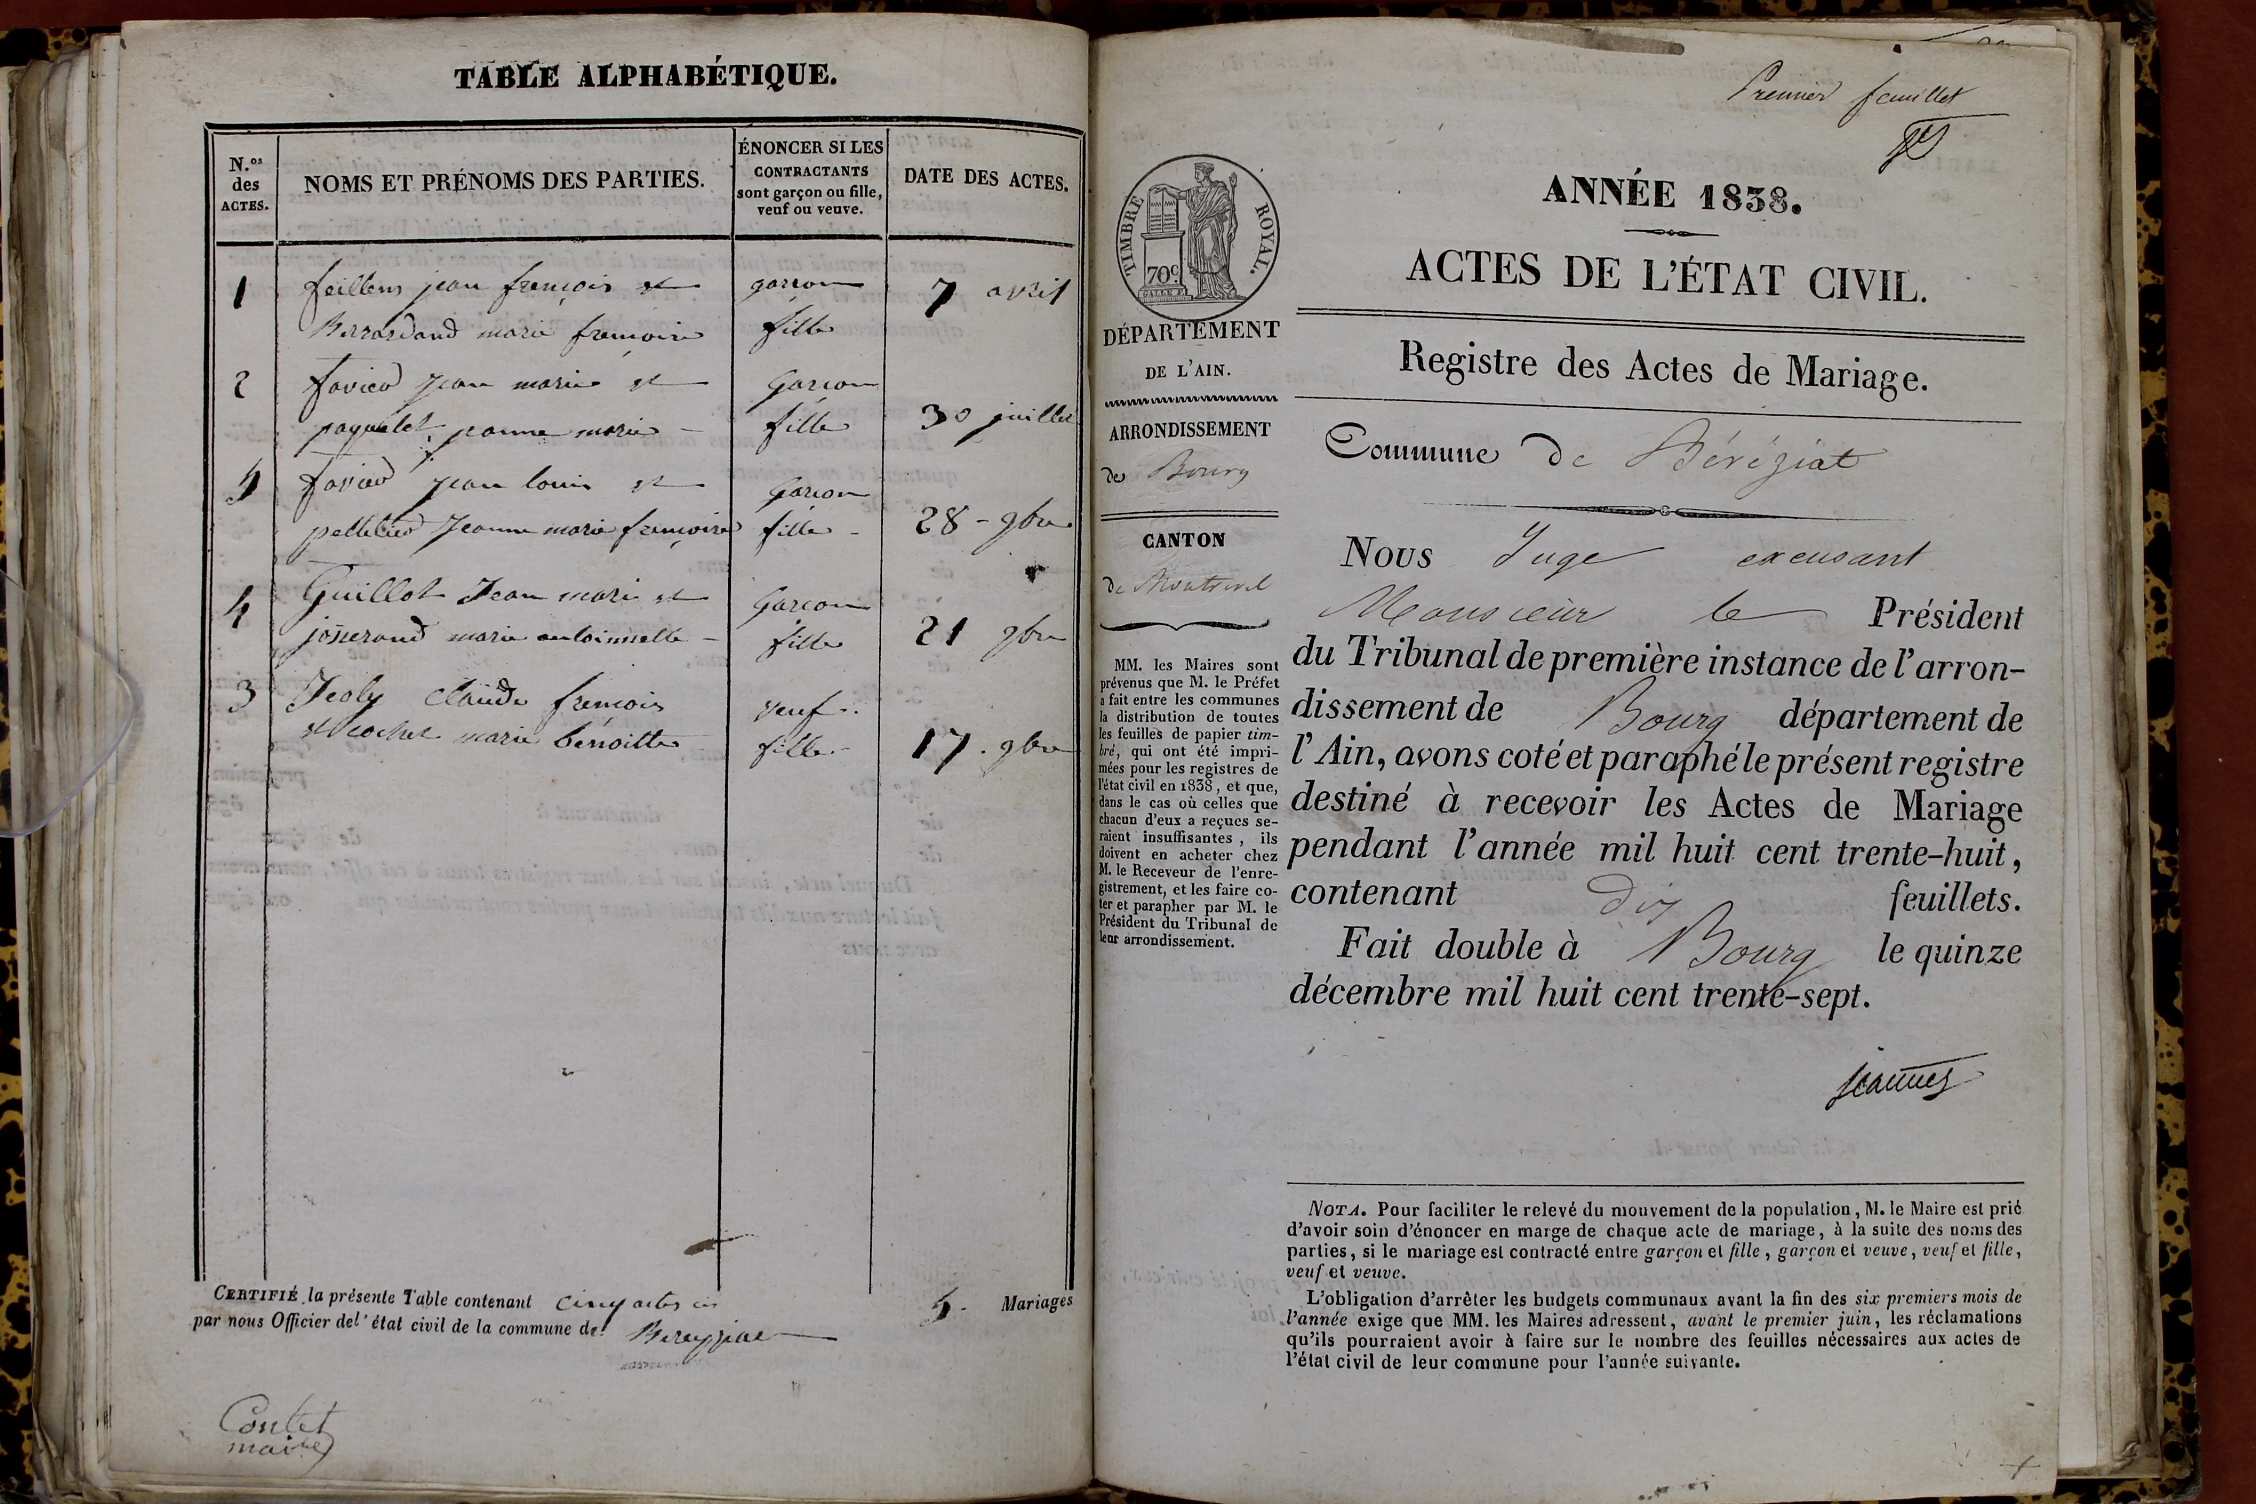 TABLE ALPHABÉTIQUE.
N.os des ACTES.
NOMS ET PRÉNOMS DES PARTIES.
ÉNONCER SI LES
CONTRACTANTS
sont garçon ou fille,
veuf ou veuve.
DATE DES ACTES.
1 feillens jean françois et garcon 7 avril
marie francoise fille
2 favier jean marie et garcon
paquelet jeanne marie – fille 30 juillet
5 favier jean louis et garcon
pelletier Jeanne marie francoise fille – 28 – 9bre
4 Guillot Jean marie et garcon
josserand marie antoinette – fille 21 9bre
3 Jeoly Claude francois veuf
et rochet marie benoitte fille – 17 . 9bre
CERTIFIÉ la présente Table contenant cinq actes 5. Mariages
par nous Officier de l'état civil de la commune de Bereyziat
Contet
maire
Premier feuillet
TIMBRE ROYAL.
70c
ANNÉE 1838.
ACTES DE L'ÉTAT CIVIL.
Registre des Actes de Mariage.
Commune de Béréziat
DÉPARTEMENT
DE L'AIN.
ARRONDISSEMENT
de Bourg
CANTON
de Montrevel
MM. les Maires sont
prévenus que M. le Préfet
a fait entre les communes
la distribution de toutes
les feuilles de papier tim-
bré, qui ont été impri-
mées pour les registres de
l'état civil en 1838, et que,
dans le cas où celles que
chacun d'eux a reçues se-
raient insuffisantes, ils
doivent en acheter chez
M. le Receveur de l'enre-
gistrement, et les faire co-
ter et parapher par M. le
Président du Tribunal de
leur arrondissement.
Nous Juge excusant
Monsieur le Président
du Tribunal de première instance de l'arron-
dissement de Bourg département de
l'Ain, avons coté et paraphé le présent registre
destiné à recevoir les Actes de Mariage
pendant l'année mil huit cent trente-huit,
contenant dix feuillets.
Fait double à Bourg le quinze
décembre mil huit cent trente-sept.
NOTA. Pour faciliter le relevé du mouvement de la population, M. le Maire est prié
d'avoir soin d'énoncer en marge de chaque acte de mariage, à la suite des noms des
parties, si le mariage est contracté entre garçon et fille, garçon et veuve, veuf et fille,
veuf et veuve.
L'obligation d'arrêter les budgets communaux avant la fin des six premiers mois de
l'année exige que MM. les Maires adressent, avant le premier juin, les réclamations
qu'ils pourraient avoir à faire sur le nombre des feuilles nécessaires aux actes de
l'état civil de leur commune pour l'année suivante.